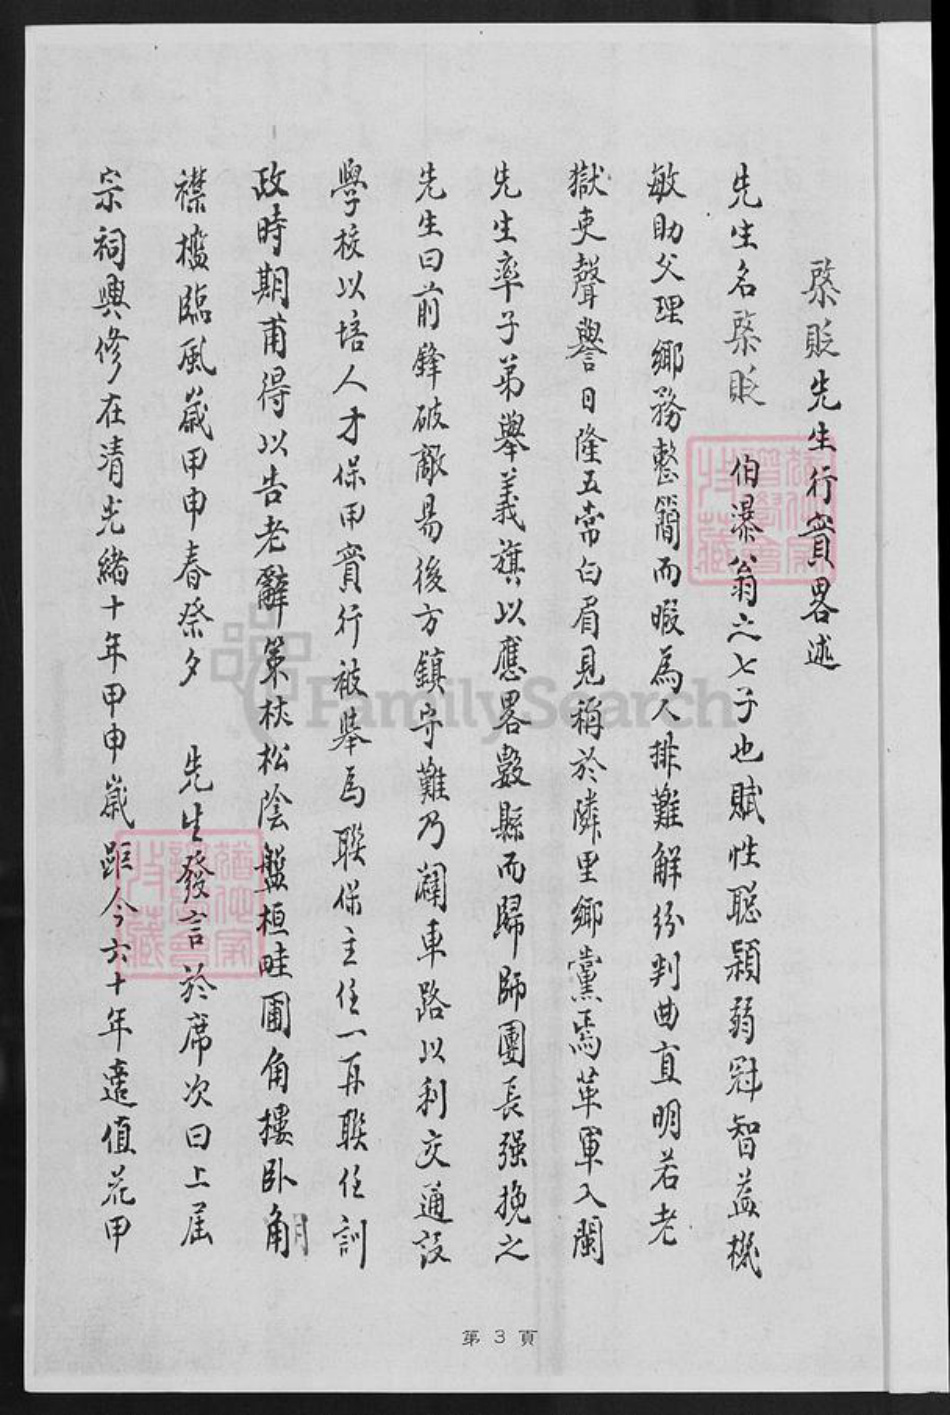 棨貶先生行實畧述
先生名棨貶 伯瀑翁之七子也賦性聪穎弱冠智益機
敏助父理鄉務整簡而暇為人排難解紛判曲直明若老
獄吏聲譽日隆五常白眉見稱於隣里鄉黨焉革軍入閩
先生率子弟舉義旗以應畧數縣而歸師團長强挽之
先生曰前鋒破敵易後方鎮守難乃濶車路以利交通設
學校以培人才保甲實行被舉為聯保主任一再聯任訓
政時期甫得以告老辭策杖松陰盤桓畦圃角摟卧角
襟檻臨風歲甲申春祭夕 先生發言於席次曰上届
宗祠興修在清光緒十年甲申歲距今六十年適值花甲
第3頁
FamilySearch